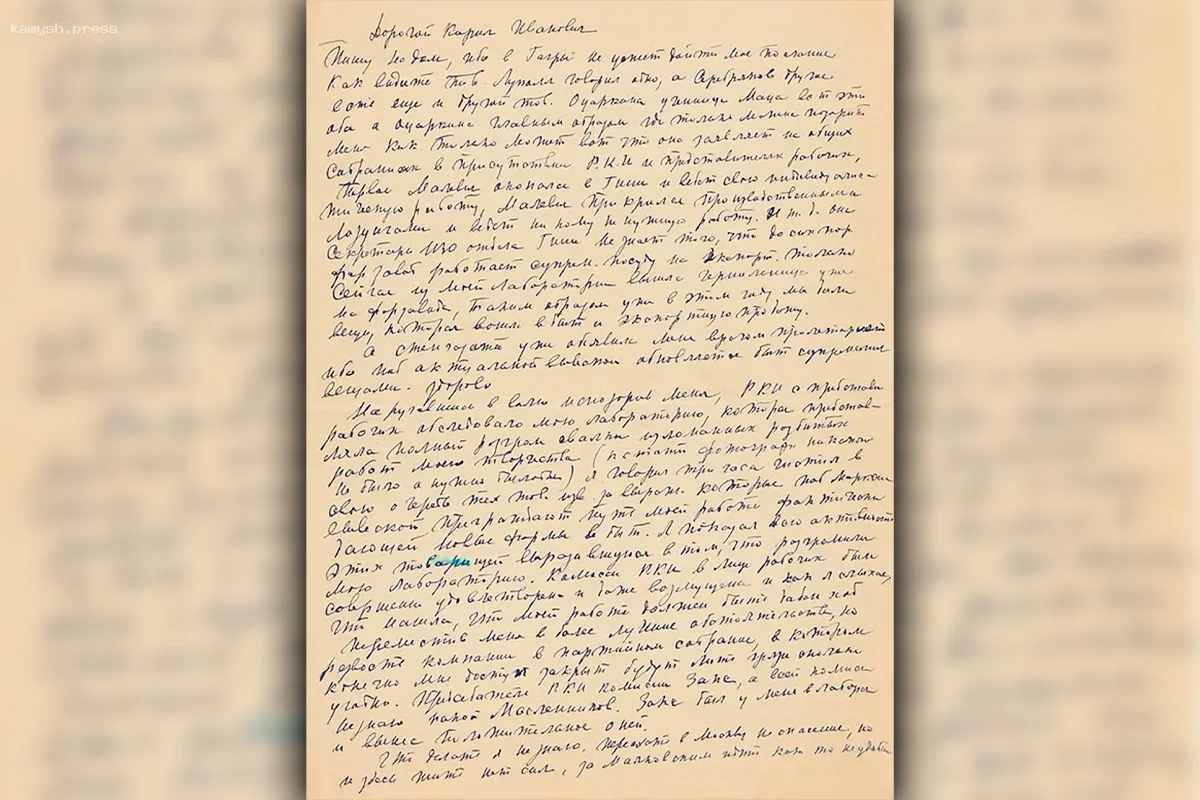 kamysh.press
Дорогой Кирил Иванович
Пишу Вам, ибо в Гагры не успеет дойти мое послание
Как видите тов. Луппол говорил одно, а Серебряков другое
есть еще и другой тов. Оцаркина ученица Маца вот эти
оба а Оцаркина главным образом где только можно позорит
меня как только может вот что она заявляет на общих
собраниях в присутствии Р.К.И и представителей рабочих,
Первое Малевич окопался в Гиии и ведет свою индивидуалис-
тическую работу, Малевич прикрылся производственными
лозунгами и ведет никому не нужную работу. И т.д. она
секретарь ИЗО отдела Гиии не знает того, что до сих пор
фарзавод работает супрем. посуду на экспорт. только
сейчас из моей лаборатории вышла чернильница уже
на фарзавода, таким образом уже в этом году мы дали
вещь, которая вошла в быт и экспортную продажу.
А стенгазета уже объявила меня врагом пролетариата
ибо под актуальной вывеской обновляется быт супрематич
вещами. здорово
Наругавшись в волю исподоров меня, РКИ с представи
рабочих обследовало мою лабораторию, которая представ-
ляла полный разгром свалки изломанных разбитых
работ моего творчества (кстати фотографа никакого
не было а нужно было бы) я говорил три часа чистил в
свою очередь тех тов. изо за ширам. которые под марксис
вывеской преграждают путь моей работе фактически
дающей новые формы в быт. Я показал всю активность
этих товарищей выразившуюся в том, что разгромили
мою лабораторию. Комиссия РКИ в лице рабочих была
совершенно удовлетворена и даже возмущена и как я слыхал,
что нашла, что моей работе должен быть дабан ход
переместив меня в более лучшие обстоятельства, но
резвость компании в партийном собрании, в котором
конечно мне доступ закрыт будут лить грязи сколько
угодно. Председатель РКИ комиссии Закс, а всей комисии
не знаю какой Масленников. Закс был у меня в лабора
и вынес положительное о ней.
Что делать я не знаю. переехать в Москву не спасение, но
и здесь жить нет сил, за Маяковским идти как то неудобно